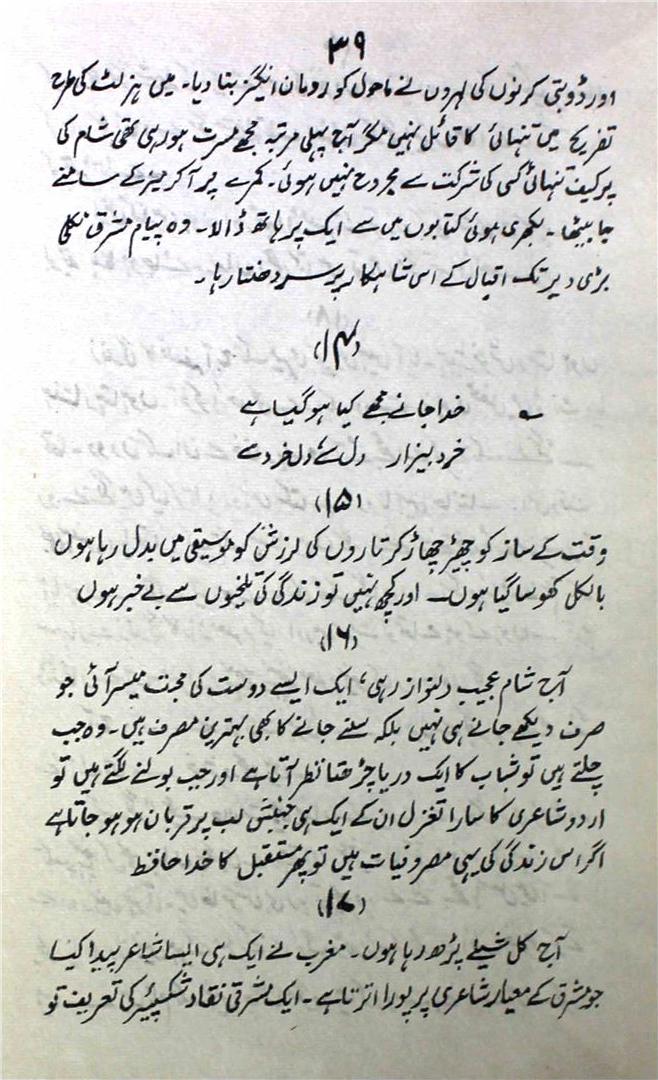 ۳۹
اور ڈوبتی کرنوں کی لہروں نے ماحول کو رومان انگیز بنا دیا۔ میں ہزلٹ کی طرح
تفریح میں تنہائی کا قائل نہیں مگر آج پہلی مرتبہ مجھے مسرت ہو رہی تھی شام کی
پرکیف تنہائی کسی کی شرکت سے مجروح نہیں ہوئی۔ کمرے پر آکر میز کے سامنے
جا بیٹھا۔ بکھری ہوئی کتابوں میں سے ایک پر ہاتھ ڈالا۔ وہ پیام مشرق نکلی
بڑی دیر تک اقبال کے اس شاہکار پر سر دھنتا رہا۔
(۱۴)
خدا جانے مجھے کیا ہو گیا ہے
خرد بیزار دل سے دل خرد سے
(۱۵)
وقت کے ساز کو چھیڑ چھاڑ کر تاروں کی لرزش کو موسیقی میں بدل رہا ہوں
بالکل کھو سا گیا ہوں۔ اور کچھ نہیں تو زندگی کی تلخیوں سے بے خبر ہوں
(۱۶)
آج شام عجیب دلنواز رہی، ایک ایسے دوست کی محبت میسر آئی جو
صرف دیکھے جانے ہی نہیں بلکہ سنے جانے کا بھی بہترین مصرف ہیں۔ وہ جب
چلتے ہیں تو شباب کا ایک دریا چڑھتا نظر آتا ہے اور جب بولنے لگتے ہیں تو
اردو شاعری کا سارا تغزل ان کے ایک ہی جنبش لب پر قربان ہو ہو جاتا ہے
اگر اس زندگی کی یہی مصروفیات ہیں تو پھر مستقبل کا خدا حافظ
(۱۷)
آج کل شیلے پڑھ رہا ہوں۔ مغرب نے ایک ہی ایسا شاعر پیدا کیا
جو مشرق کے معیار شاعری پر پورا اترتا ہے۔ ایک مشرقی نقاد شکسپیئر کی تعریف تو